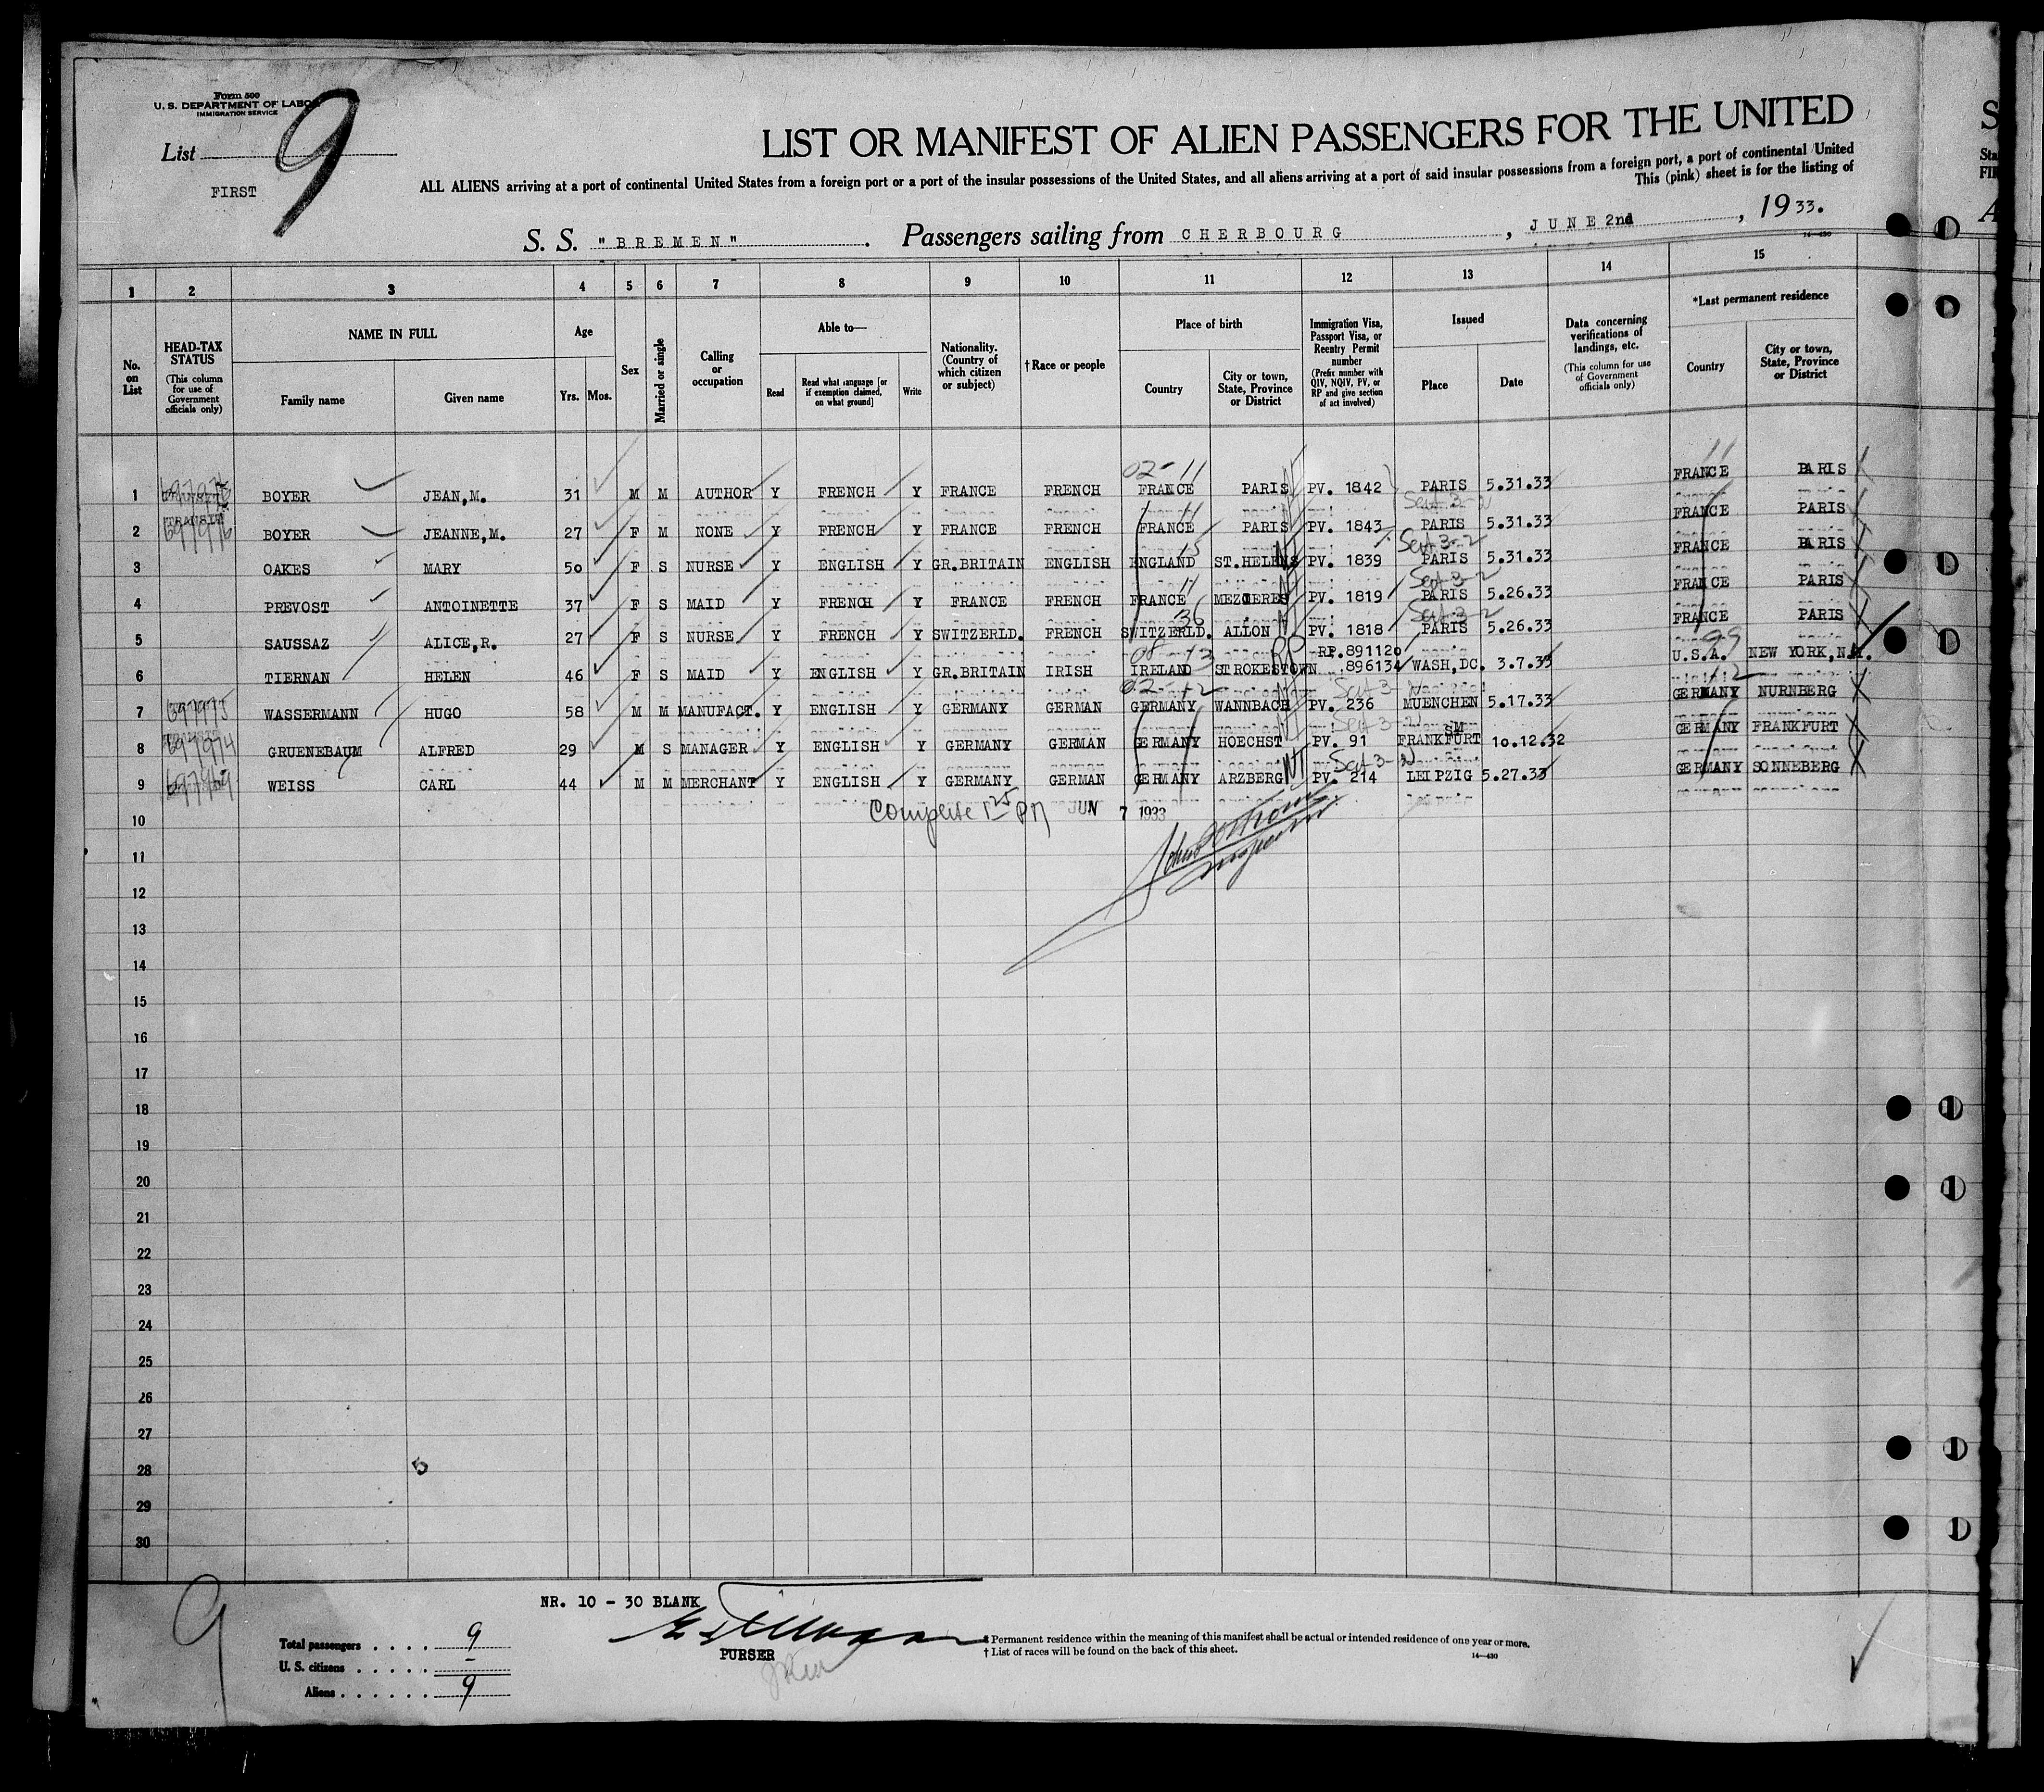 Form 500
U. S. DEPARTMENT OF LABOR
IMMIGRATION SERVICE
List 9
FIRST
LIST OR MANIFEST OF ALIEN PASSENGERS FOR THE UNITED
ALL ALIENS arriving at a port of continental United States from a foreign port or a port of the insular possessions of the United States, and all aliens arriving at a port of said insular possessions from a foreign port, a port of continental United
This (pink) sheet is for the listing of
S. S. "BREMEN". Passengers sailing from CHERBOURG, JUNE 2nd, 1933.
14—430
1 2 3 4 5 6 7 8 9 10 11 12 13 14 15
No. on List
HEAD-TAX STATUS (This column for use of Government officials only)
NAME IN FULL
Family name
Given name
Age
Yrs. Mos.
Sex
Married or single
Calling or occupation
Able to—
Read
Read what language [or if exemption claimed, on what ground]
Write
Nationality. (Country of which citizen or subject)
†Race or people
Place of birth
Country
City or town, State, Province or District
Immigration Visa, Passport Visa, or Reentry Permit number (Prefix number with QIV, NQIV, PV, or RP and give section of act involved)
Issued
Place
Date
Data concerning verifications of landings, etc. (This column for use of Government officials only)
*Last permanent residence
Country
City or town, State, Province or District
02-11 11
1 BOYER JEAN,M. 31 M M AUTHOR Y FRENCH Y FRANCE FRENCH FRANCE PARIS PV. 1842 PARIS 5.31.33 FRANCE PARIS
TRANSIT
2 697976 BOYER JEANNE,M. 27 F M NONE Y FRENCH Y FRANCE FRENCH FRANCE PARIS PV. 1843 PARIS 5.31.33 FRANCE PARIS
3 OAKES MARY 50 F S NURSE Y ENGLISH Y GR.BRITAIN ENGLISH ENGLAND ST.HELENS PV. 1839 PARIS 5.31.33 FRANCE PARIS
4 PREVOST ANTOINETTE 37 F S MAID Y FRENCH Y FRANCE FRENCH FRANCE MEZIERES PV. 1819 PARIS 5.26.33 FRANCE PARIS
5 SAUSSAZ ALICE,R. 27 F S NURSE Y FRENCH Y SWITZERLD. FRENCH SWITZERLD. ALLON PV. 1818 PARIS 5.26.33 FRANCE PARIS
RP.891120
6 TIERNAN HELEN 46 F S MAID Y ENGLISH Y GR.BRITAIN IRISH IRELAND STROKESTOWN .896134 WASH,DC. 3.7.33 U.S.A. NEW YORK,N.Y.
7 697975 WASSERMANN HUGO 58 M M MANUFACT. Y ENGLISH Y GERMANY GERMAN GERMANY WANNBACH PV. 236 MUENCHEN 5.17.33 GERMANY NURNBERG
8 697974 GRUENEBAUM ALFRED 29 M S MANAGER Y ENGLISH Y GERMANY GERMAN GERMANY HOECHST PV. 91 FRANKFURT 10.12.32 GERMANY FRANKFURT
9 WEISS CARL 44 M M MERCHANT Y ENGLISH Y GERMANY GERMAN GERMANY ARZBERG PV. 214 LEIPZIG 5.27.33 GERMANY SONNEBERG
Complete 1st JUN 7 1933
10
11
12
13
14
15
16
17
18
19
20
21
22
23
24
25
26
27
28
29
30
NR. 10 - 30 BLANK
9
Total passengers . . . . 9
U. S. citizens . . . . . –
Aliens . . . . . . 9
PURSER
* Permanent residence within the meaning of this manifest shall be actual or intended residence of one year or more.
† List of races will be found on the back of this sheet.
14—430